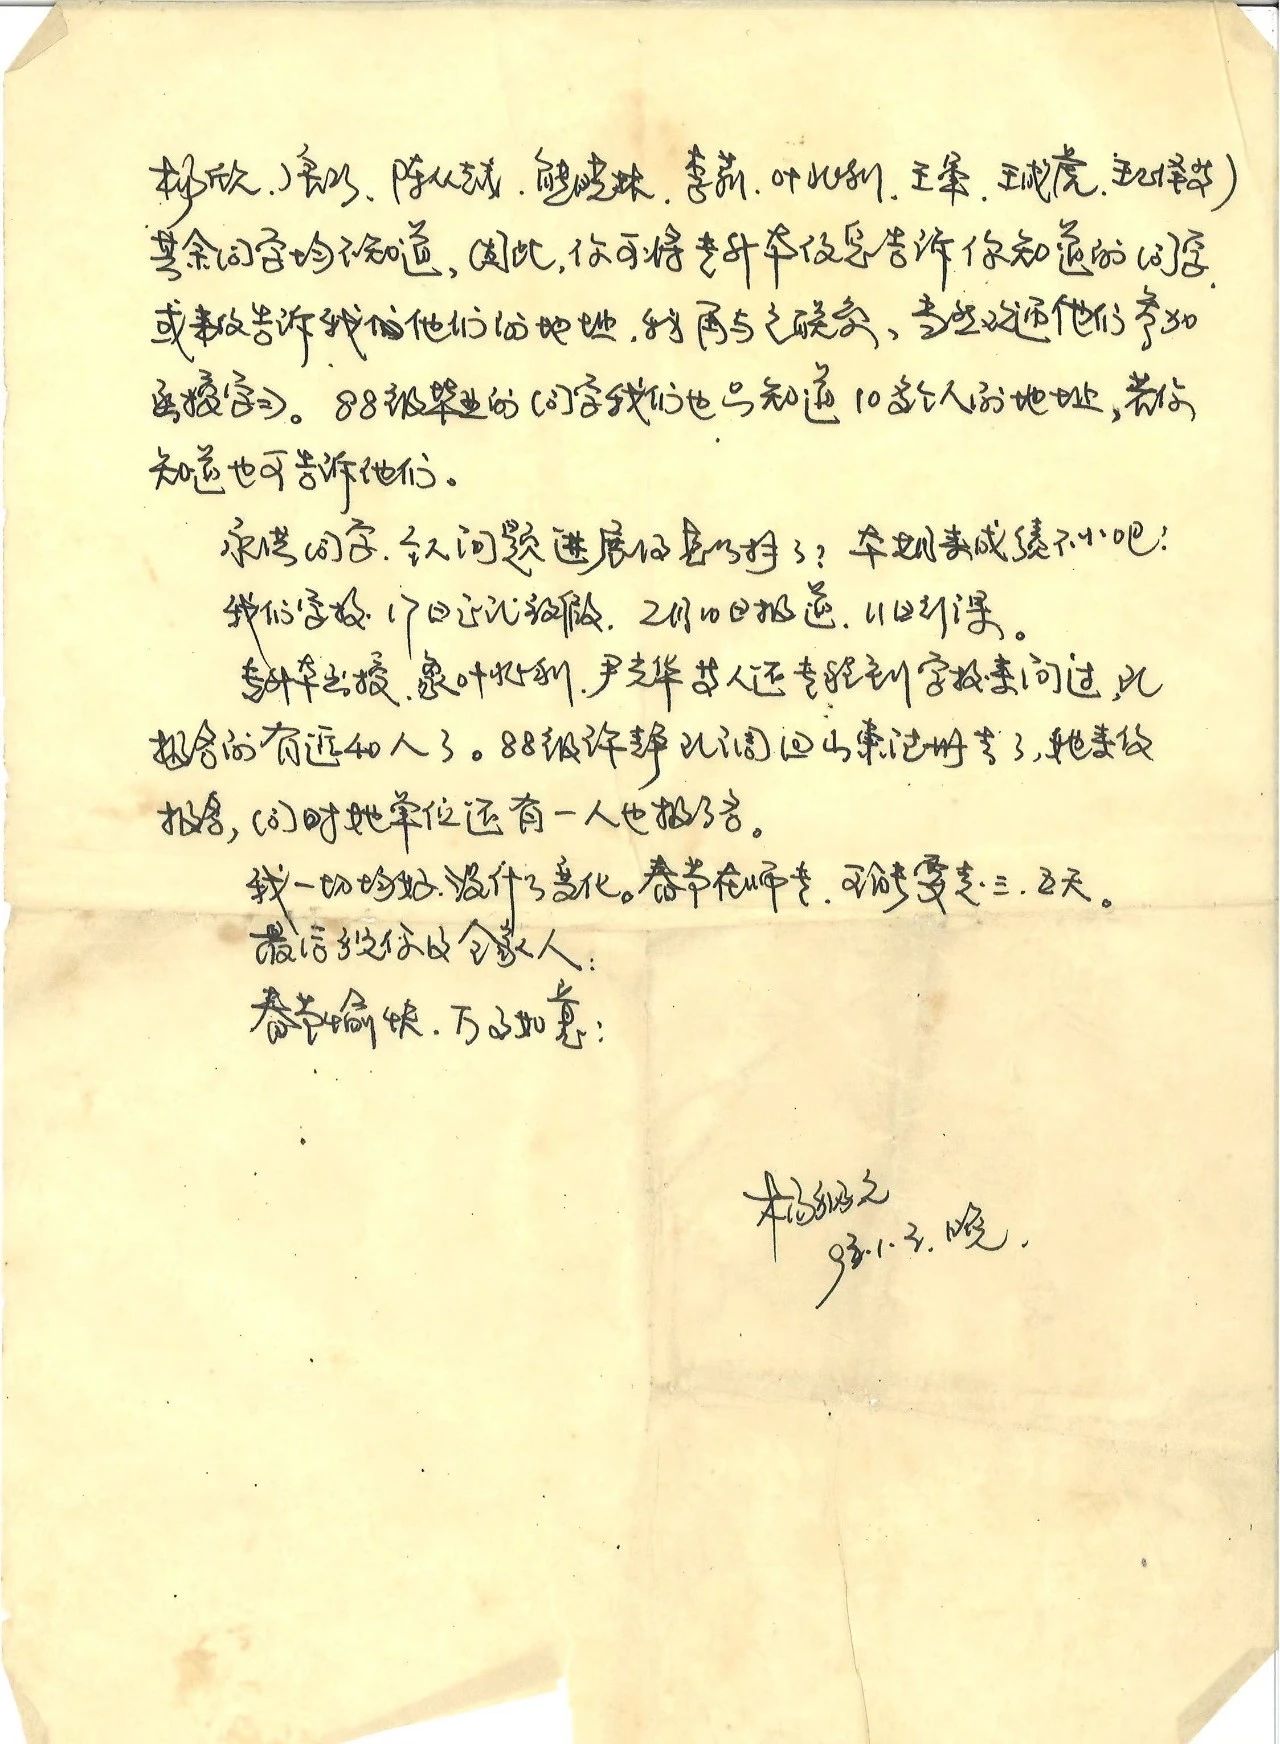 杨欣、、陈从志、熊晓琳、李莉、叶怀利、王军、王成虎、等)
其余同学均不知道,因此,你可将专升本信息告诉你知道的同学,
或来信告诉我他们的地址,我再与之联系,当然欢迎他们参加
函授学习。88级毕业的同学我们也只知道10多个人的地址,若你
知道也可告诉他们。
永洪同学,个人问题进展得怎么样了?本期来成绩不小吧!
我们学校17日正式放假,2月10日报道,11日行课。
专升本函授,象叶怀利、尹光华等人还专程到学校来问过,已
报名的有近40人了。88级许静已调回山东注册去了,她来信
报名,同时她单位还有一人也报了名。
我一切均好,没什么变化。春节在师专,可能要走三、五天。
最后祝你及全家人:
春节愉快,万事如意!
杨
晚.